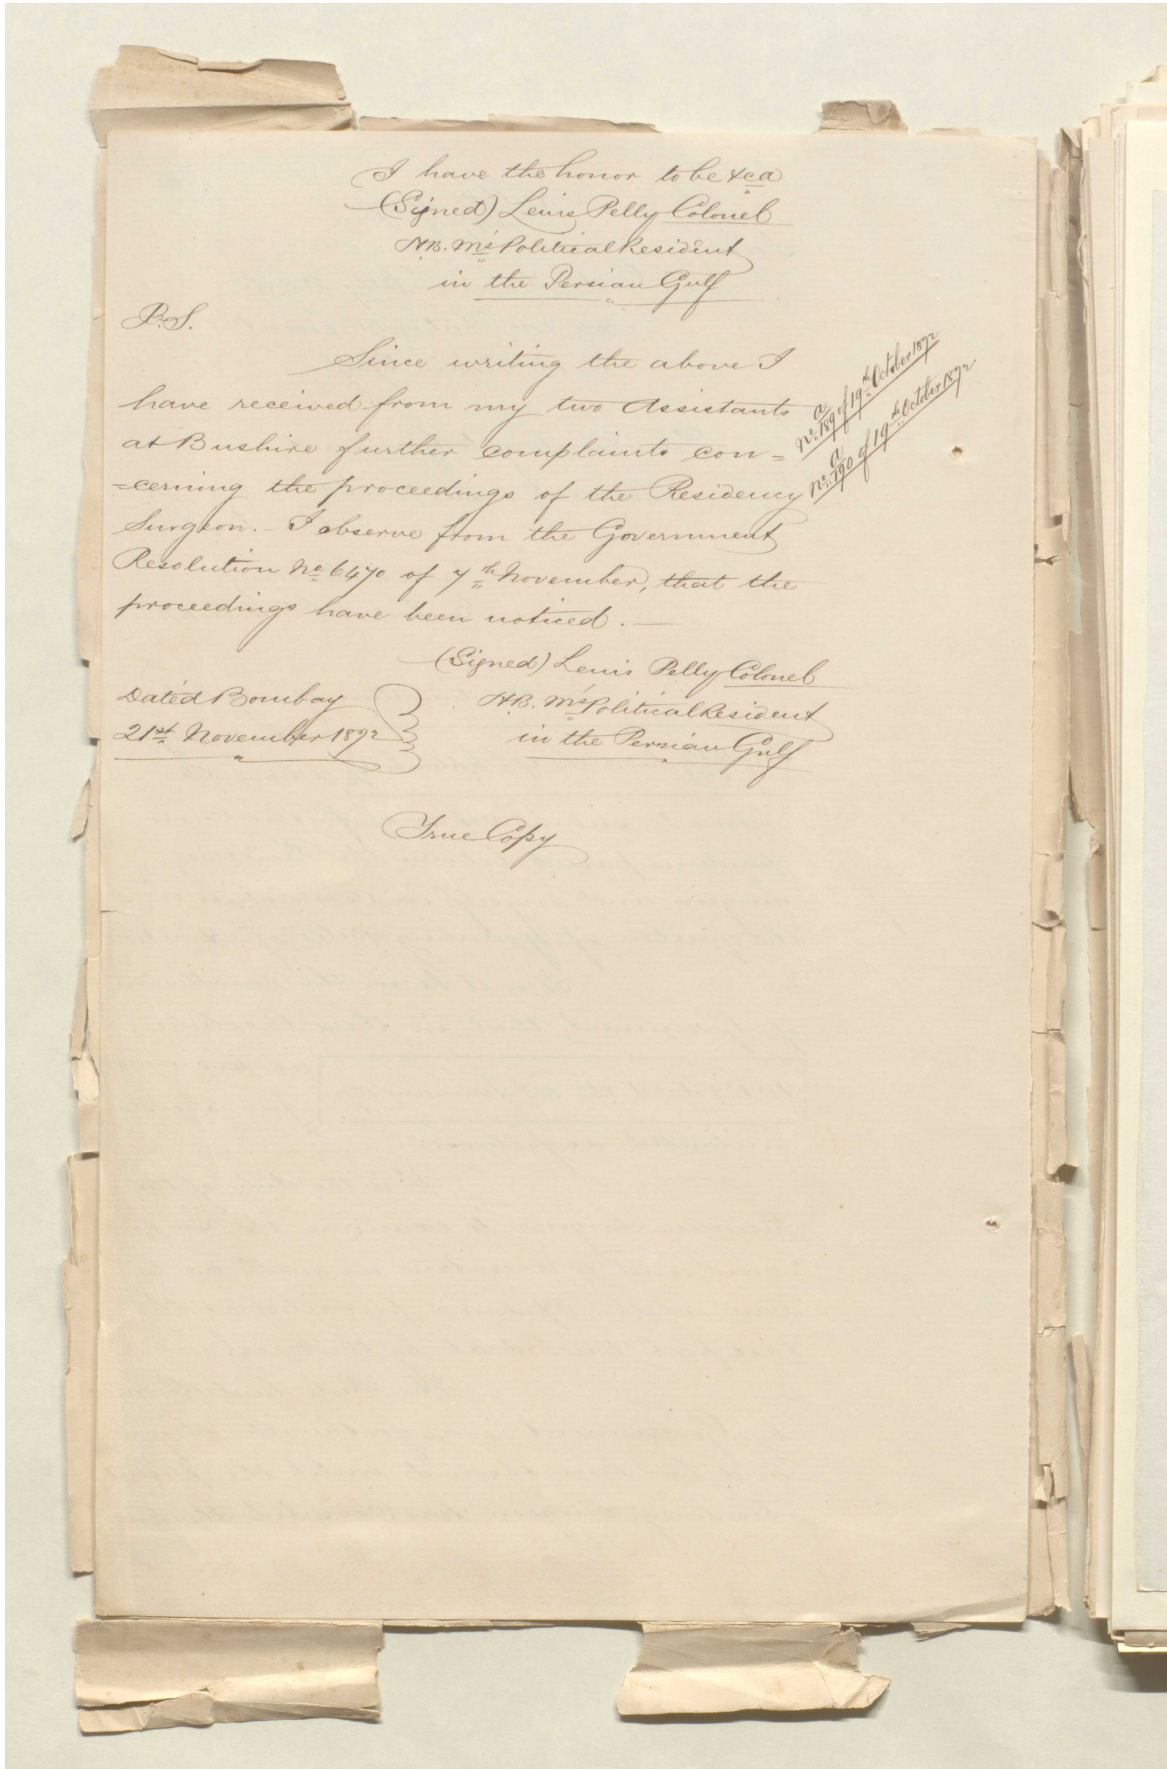 I have the honor to be &ca
(Signed) Lewis Pelly Colonel
H.B. M's Political Resident
in the Persian Gulf
P.S.
Since writing the above I
have received from my two Assistants
at Bushire further complaints con=
=cerning the proceedings of the Residency
Surgeon. - I observe from the Government
Resolution No 6470 of 7th November, that the
proceedings have been noticed. —
No. 189 a of 19th October 1872
No. 190 a of 19th October 1872
(Signed) Lewis Pelly Colonel
H.B. M's Political Resident
in the Persian Gulf
Dated Bombay
21st November 1872
True Copy